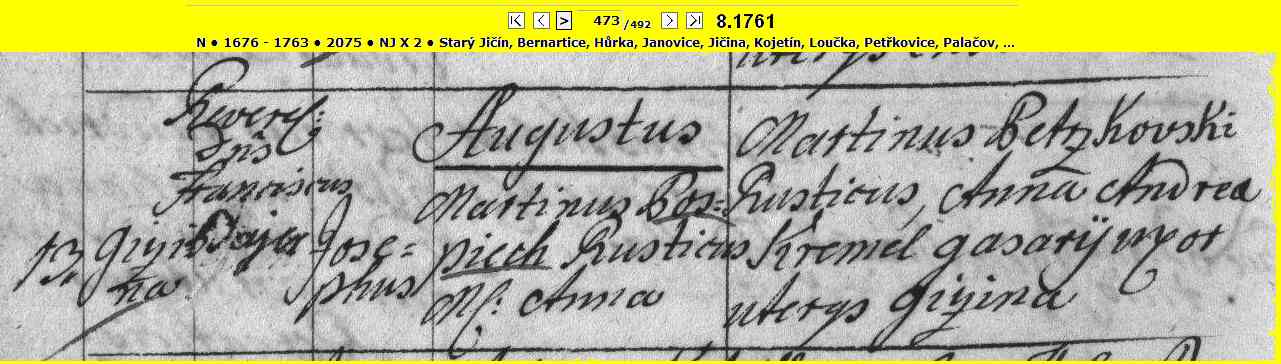 473 /492 8.1761
N • 1676 - 1763 • 2075 • NJ X 2 • Starý Jičín, Bernartice, Hůrka, Janovice, Jičina, Kojetín, Loučka, Petřkovice, Palačov, ...
Reverd:
Dñs
Franciscus
13 Giyi
na
Jose=
phus
Augustus
Martinus Pos=
piech Rusticus
M: Anna
Martinus Petzkovski
Rusticus, Anna Andrea
Kremel gasarÿ uxor
uterqs Giyina